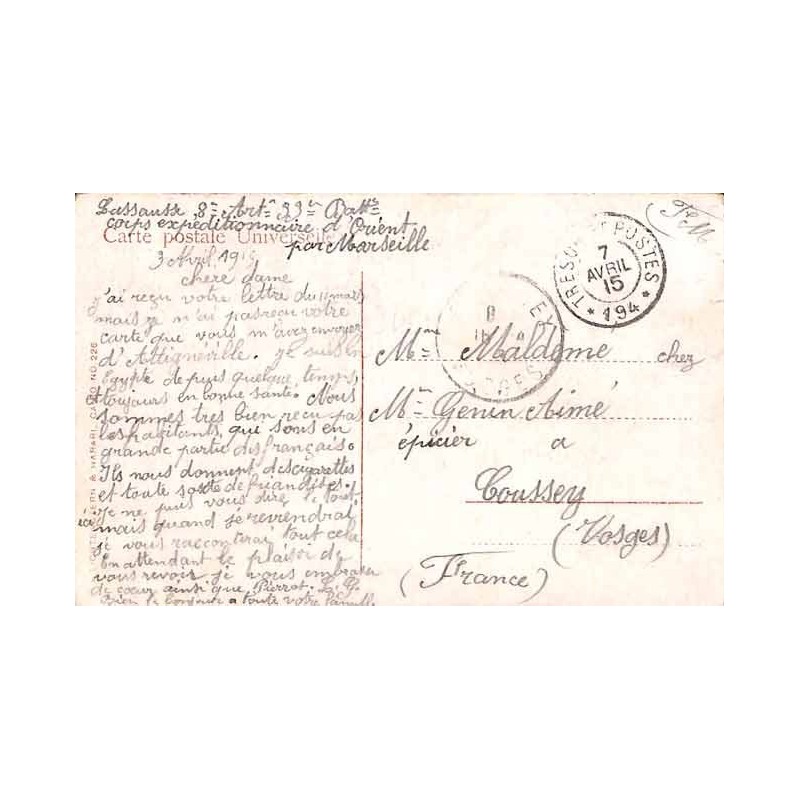 Lassausse, 8e Artie 39e Batt
corps expéditionnaire d'Orient
Carte postale Universelle
par Marseille
3 Avril 1915
chere dame
j'ai reçu votre lettre du 11 mars
mais je n'ai pas recu votre
carte que vous m'avez envoyez
d'Attignéville. je suis en
Egypte depuis quelque temps,
et toujours en bonne santé. Nous
sommes tres bien reçu pas
les habitants, qui sons en
grande partie des français.
Ils nous donnent des cigarettes
et toute sorte de friandises.
Je ne puis vous dire le tout
ici mais quand je revriendrai
je vous raconterai tout cela
En attendant le plaisir de
vous revoir je vous embrasse
de cœur ainsi que Pierrot. L. G.
Bien le bonjour a toute votre famille
CAIRO NO 226
(F.M)
TRESOR ET POSTES
7
AVRIL
15
* 194 *
Mme Maldemé chez
Mr Genin Aimé
épicier a
Coussey
(Vosges)
(France)